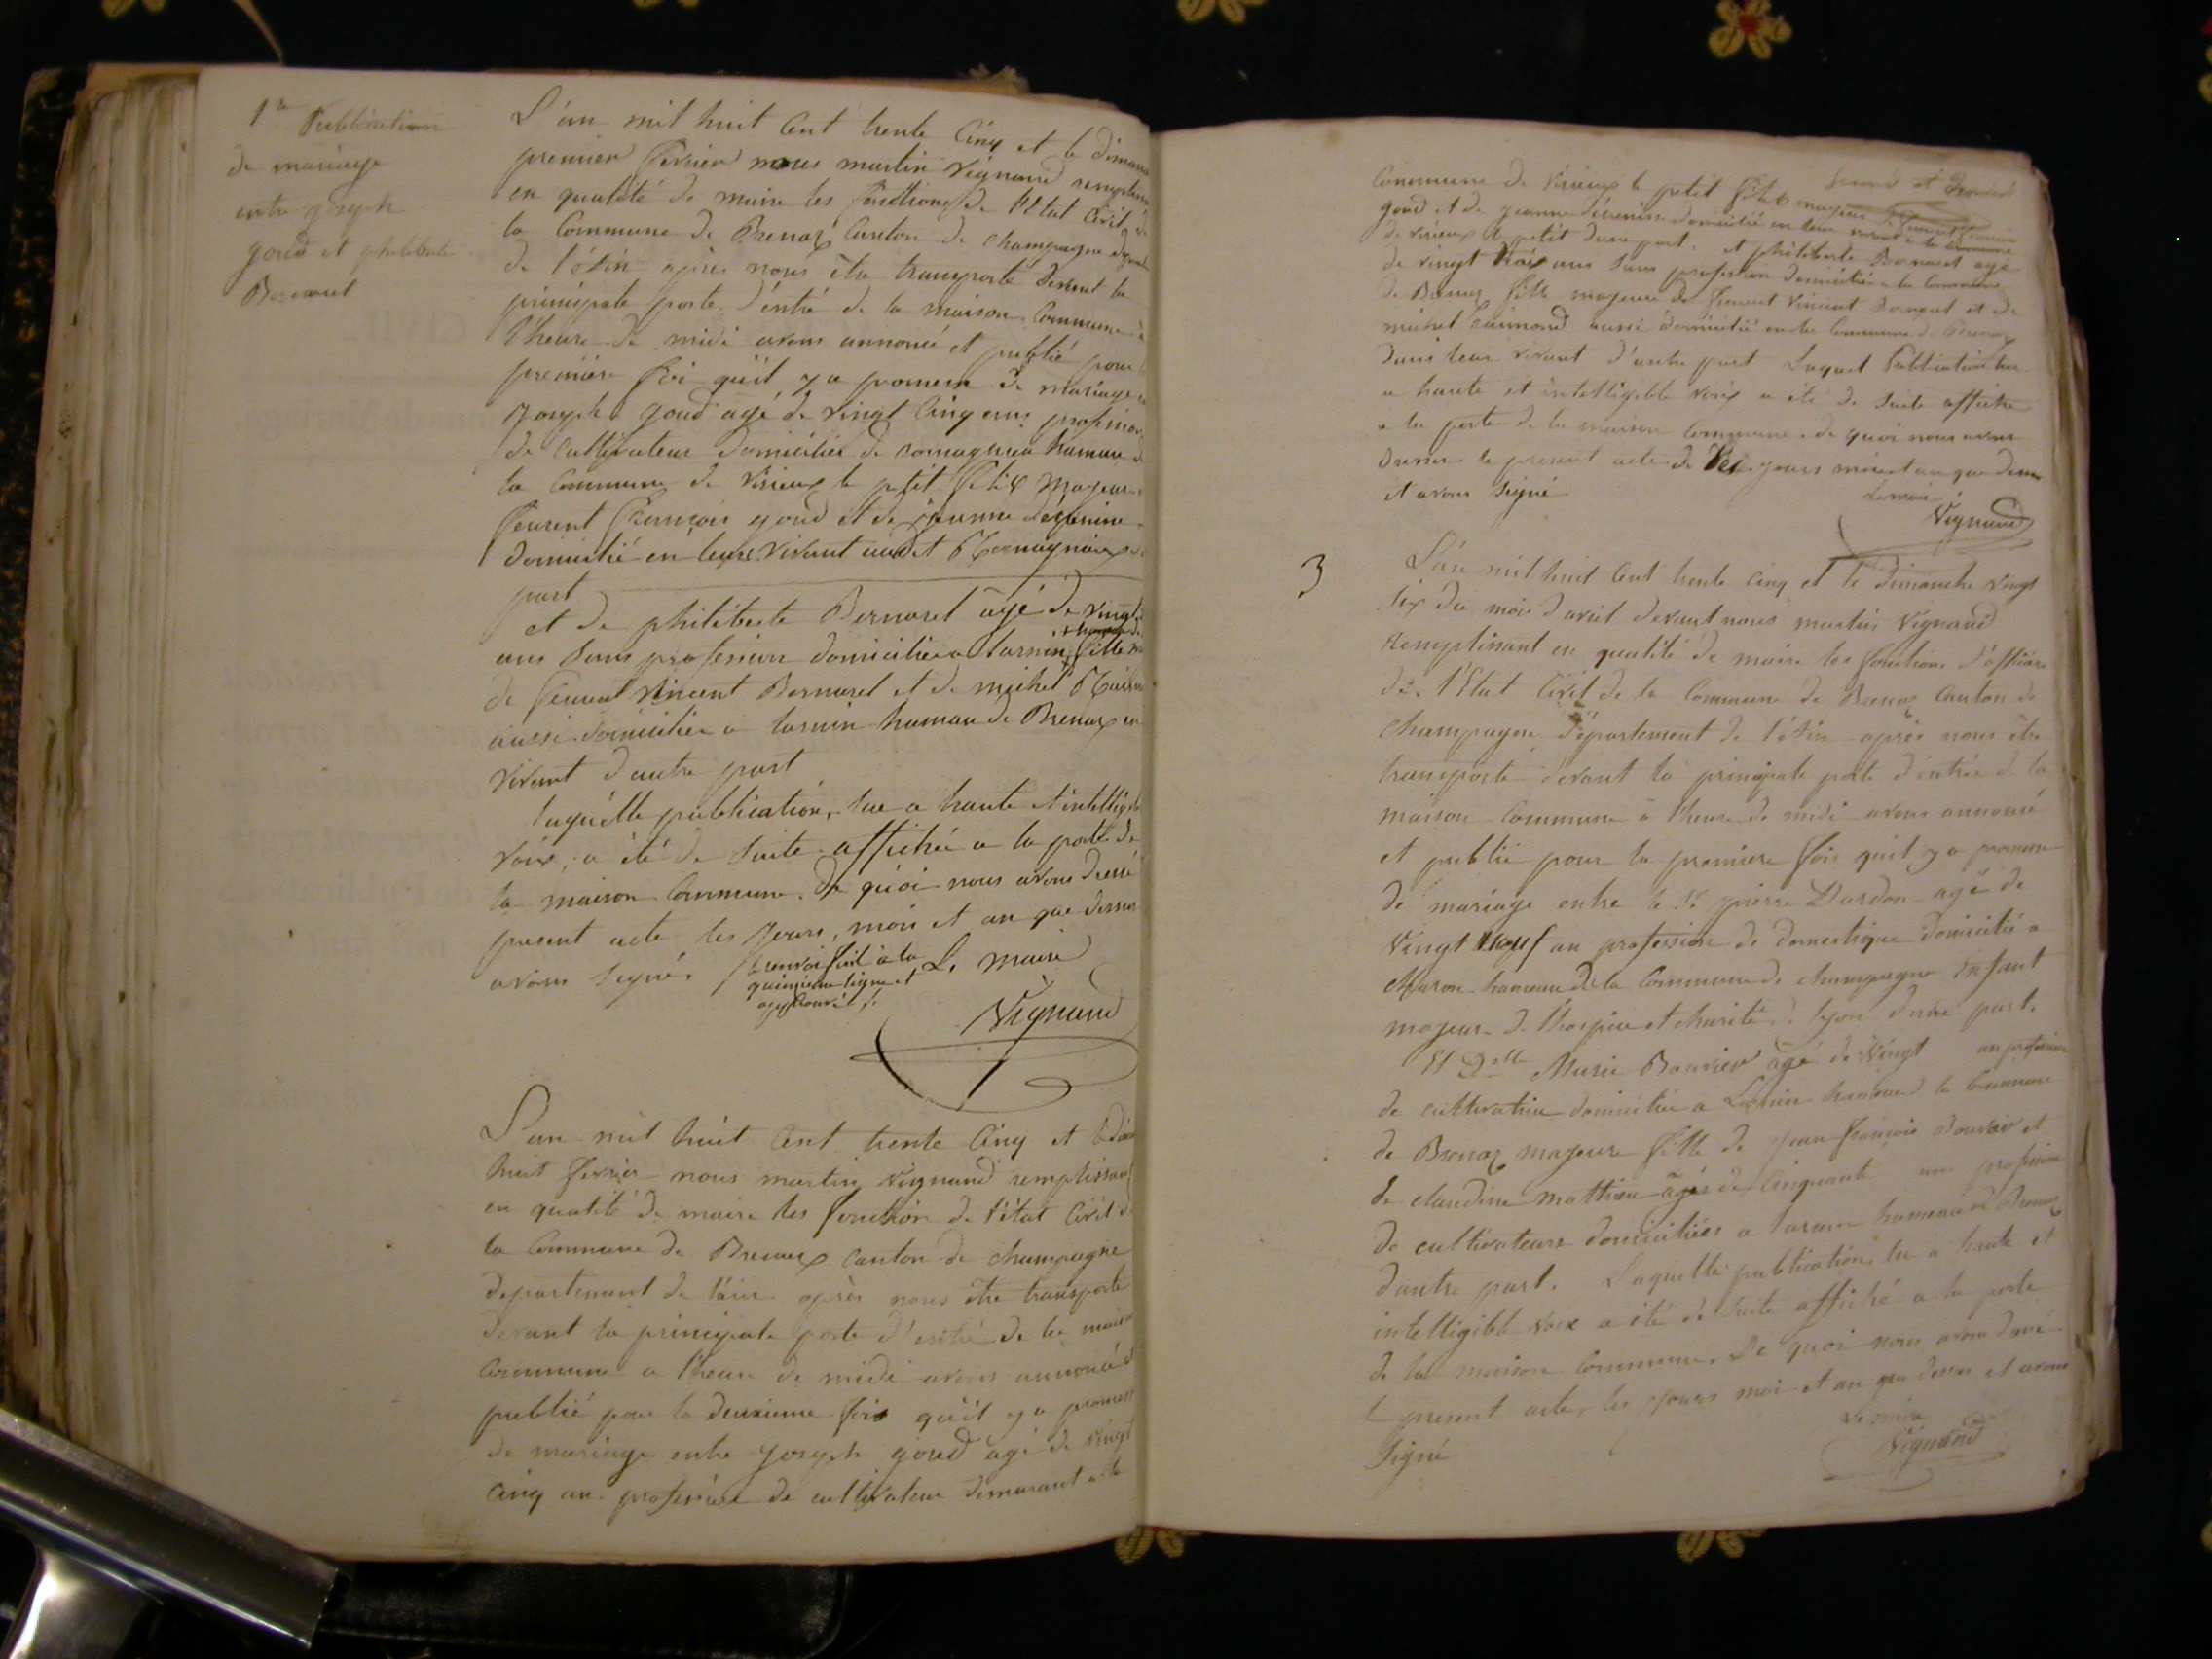 1re Publication
de mariage
entre joseph
goud et philiberte
Bernard
L'an mil huit Cent trente Cinq et le dimanc
premier fevrier nous martin Vignand remplissan
en qualité de maire les fonctions de l'Etat Civil de
la Commune de Brenaz Canton de champagne départ
de l'ain après nous être transporté devant la
principale porte d'entré de la maison Commune à
l'heure de midi avons annoncé et publié pour
première foi qu'il y a promesse de mariage
joseph goud agé de vingt Cinq ans profession
de Cultivateur domicilié de hameau de
la Commune de Virieux le petit fils majeur
feurent françois goud et de jeanne
domicilié en leurs vivant audit
part
et de philiberte Bernard agé de vingt
ans sans profession domiciliée a Larnin fille m
de feurent Vincent Bernard et de michel
aussi domiciliée a Larnin hamau de Brenaz en
vivant d'autre part
laquelle publication, lue a haute et intelligible
voix, a été de suite affichée a la porte de
la maison Commune. De quoi nous avons dressé
present acte les jours, mois et an que dessus
avons signé. le renvoi fait à la Le maire
quinzieme ligne et
approuvé
Vignand
L'an mil huit Cent trente Cinq et le dim
huit fevrier nous martin Vignand remplissant
en qualité de maire les fonction de l'état Civil de
la Commune de Brenaz Canton de champagne
departement de l'ain après nous être transporté
devant la principale porte d'entré de la maison
Commune a l'heure de midi avons annoncé et
publié pour la deuxieme fois qu'il y a promesse
de mariage entre joseph goud agé de vingt
Cinq an profession de cultivateur demeurant a la
Commune de Virieux le petit fils majeur
goud et de jeanne domicilié en leur vivant a la Commune
de Virieux le petit d'une part. et philiberte Bernard agé
de vingt trois ans sans profession domiciliée a la Commune
de Brenaz fille majeure de feurent Vincent Bernard et de
michel aussi domicilié en la Commune de Brenaz
dans leur vivant d'autre part Laquel Publication lue
a haute et intelligible voix a été de suite affichée
a la porte de la maison Commune de quoi nous avons
dresser le present acte de les jours mois et an que dessus
et avons signé
Le maire
Vignand
3
L'an mil huit Cent trente Cinq et le dimanche vingt
six du mois d'avril devant nous martin Vignand
remplissant en qualité de maire les fonctions d'officier
de l'Etat Civil de la Commune de Brenaz Canton de
champagne département de l'ain après nous être
transporté devant la principale porte d'entrée de la
maison Commune à l'heure de midi avons annoncé
et publié pour la premiere fois qu'il y a promesse
de mariage entre le Sr pierre Dardon agé de
vingt neuf an profession de domestique domicilié a
hameau de la Commune de champagne Enfant
majeur de l'hospice et charité de lyon d'une part.
Et Delle Marie Bouvier âgé de vingt an profession
de cultivatrice domiciliée a Larnin hameau de la Commune
de Brenaz majeure fille de jean françois Bouvier et
de claudine mathieu âgés de Cinquante ans profession
de cultivateurs domiciliées a Larnin hameau de Brenaz
d'autre part. Laquelle publication lu a haute et
intelligible voix a été de suite affiché a la porte
de la maison Commune. De quoi nous avons dressé
le present acte, les jours moi et an que dessus et avons
signé
Le maire
Vignand